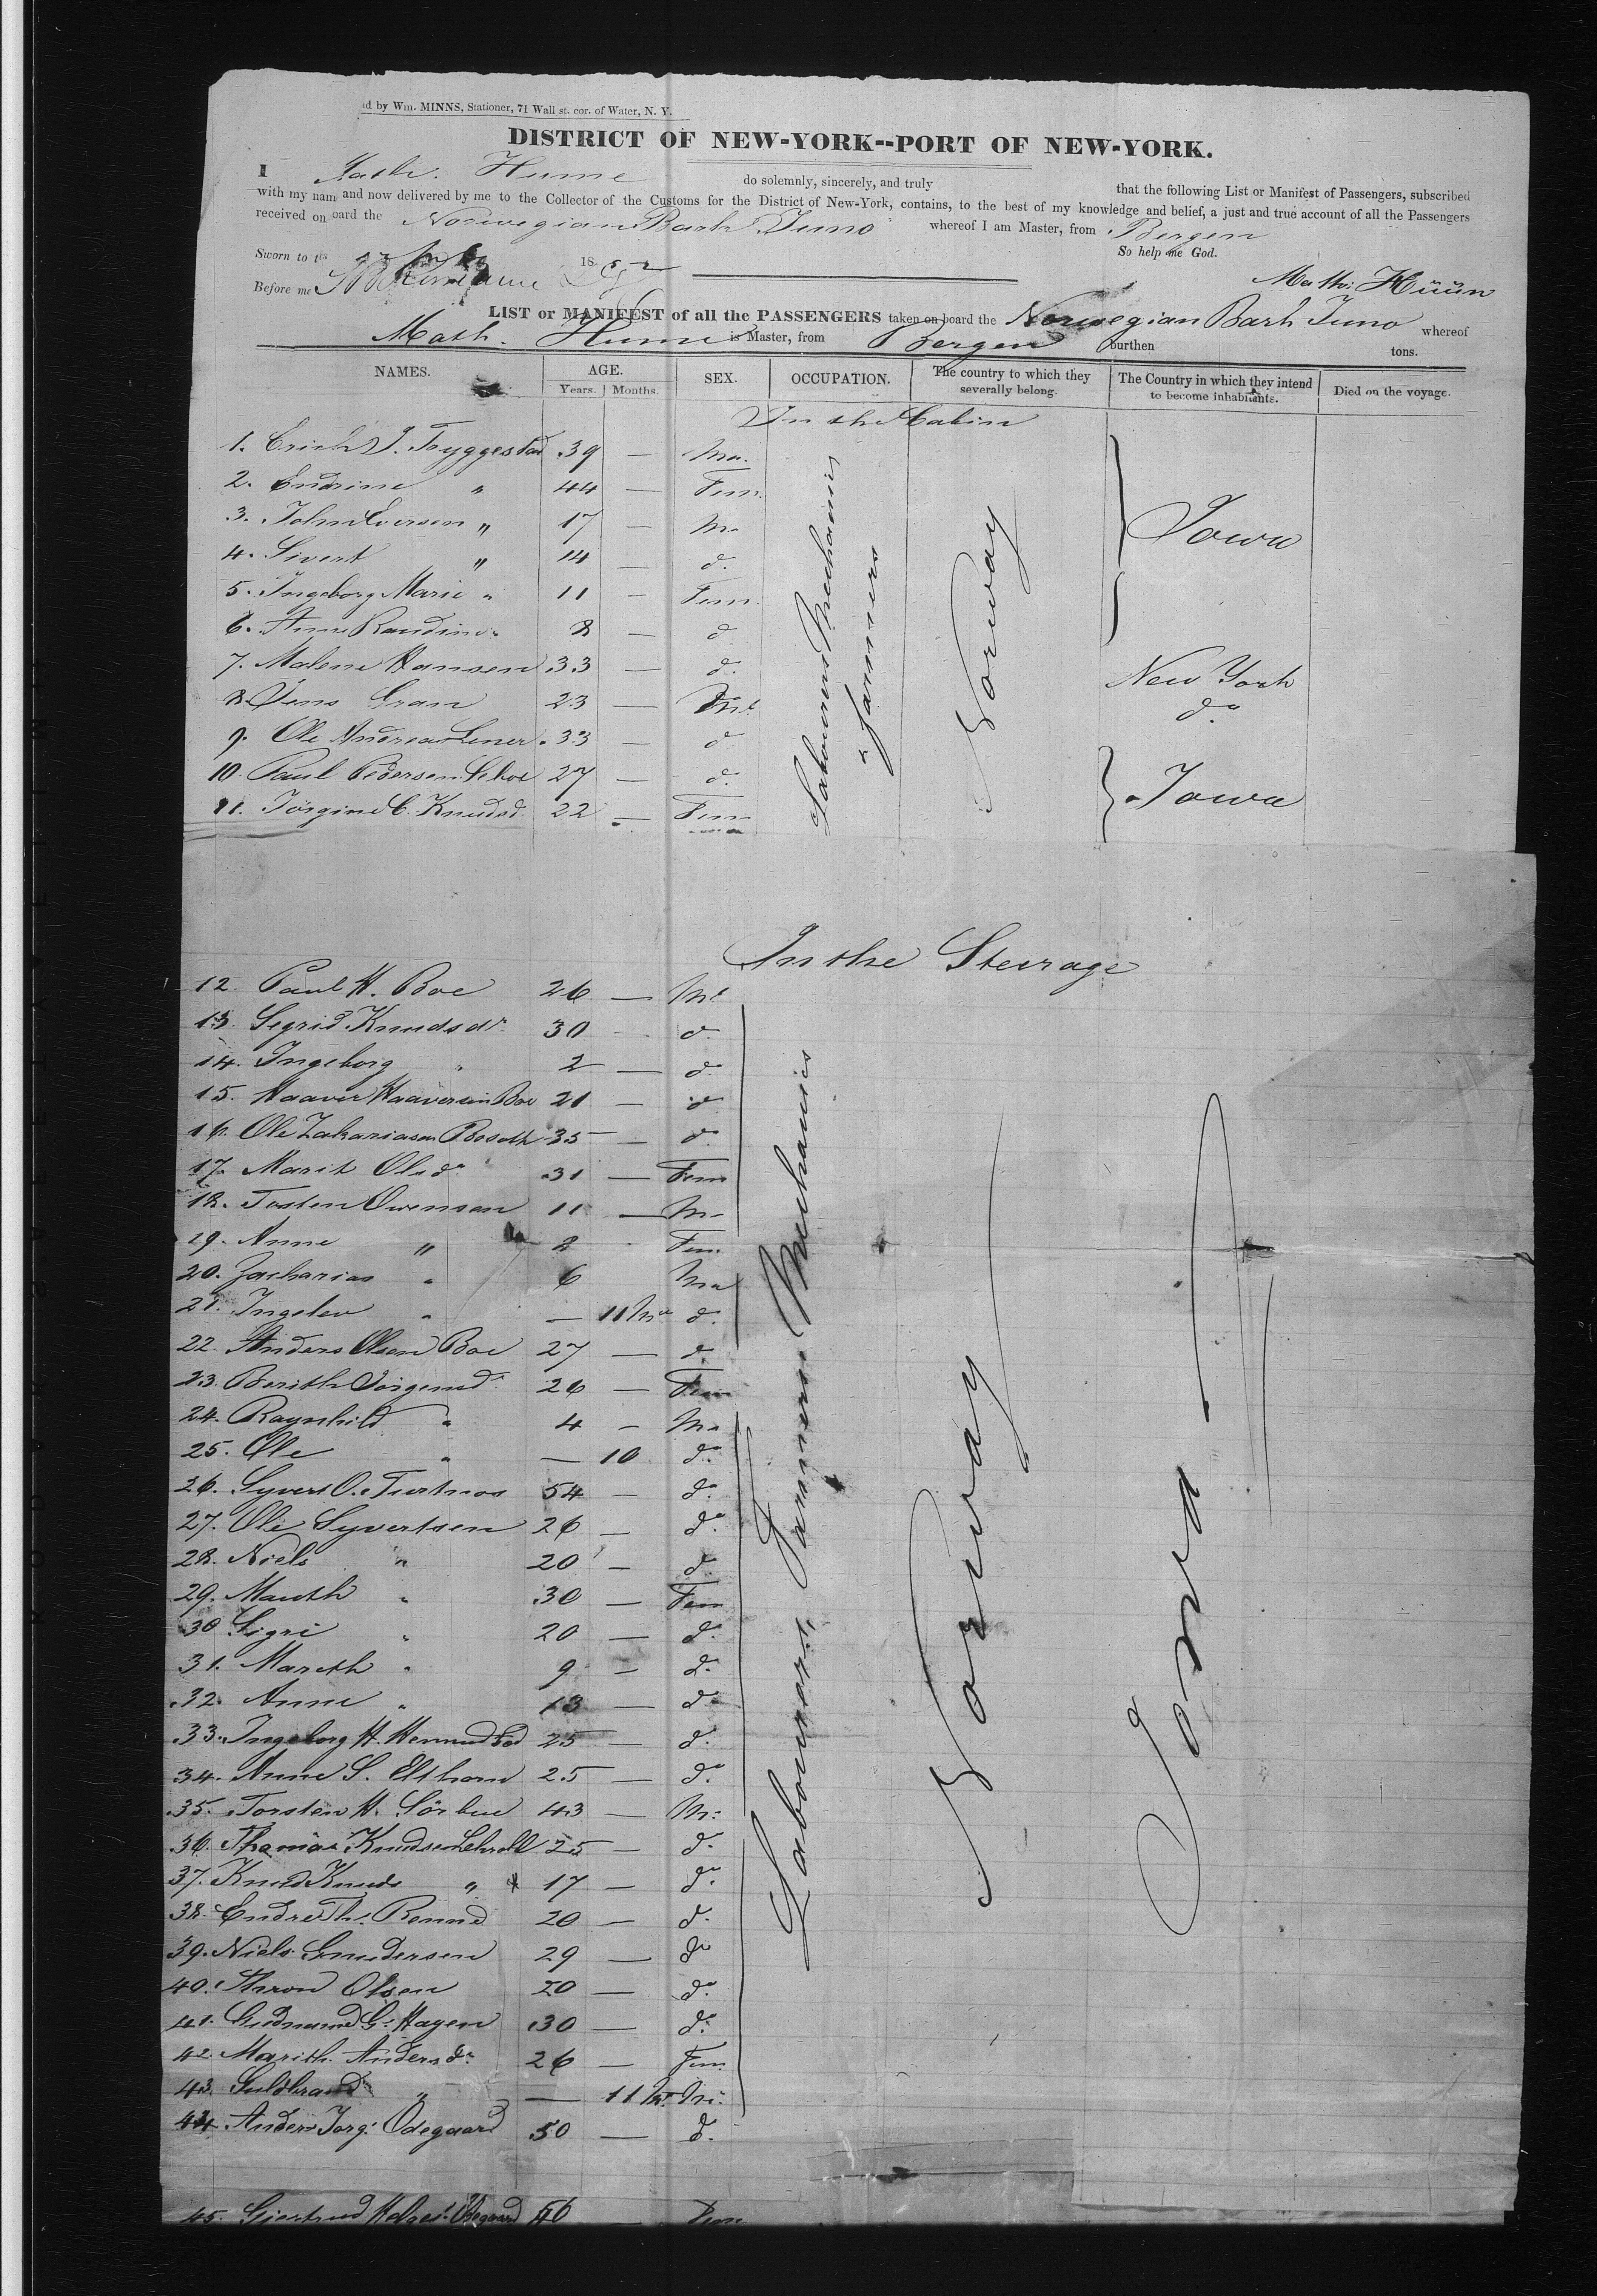 id by Wm. MINNS, Stationer, 71 Wall st. cor. of Water, N. Y.
DISTRICT OF NEW-YORK--PORT OF NEW-YORK.
I Math. Hunn do solemnly, sincerely, and truly that the following List or Manifest of Passengers, subscribed
with my nam and now delivered by me to the Collector of the Customs for the District of New-York, contains, to the best of my knowledge and belief, a just and true account of all the Passengers
received on oard the Norwegian Bark Juno whereof I am Master, from Bergen
Sworn to th 18 52 So help me God.
Before me Math: Hüün
LIST or MANIFEST of all the PASSENGERS taken on board the Norwegian Bark Juno whereof
Math. Hunn is Master, from Bergen burthen tons.
NAMES. AGE. SEX. OCCUPATION. The country to which they severally belong. The Country in which they intend to become inhabitants. Died on the voyage.
Years. Months.
In the Cabin
1. Erich J. Tryggestad 39 — Ma.
2. Endrine " 44 — Fem.
3. John Eversen " 17 — Ma
4. Sivert " 14 — d.
5. Ingeborg Marie " 11 — Fem.
6. Anne Randine " 8 — d
7. Malene Hansen 33 — d.
8. Jens Gran 23 — Ml
9. Ole Andreas Lener 33 — d
10. Paul Pedersen 27 — d.
11. Jörgine C. Knudsd. 22 — Fem
Labourers Mechanics & farmers
Norway
Iowa
New York
do
Iowa
In the Steerage
12. Paul H. Boe 26 — Ml
13. Segrid Knudsdr 30 — d.
14. Ingeborg " 2 — d.
15. Haaver Haaversen Boe 21 — d
16. Ole Zakariasen 35 — d.
17. Marit Olsdr 31 — Fem
18. Tosten Owensen 11 — Ma
19. Anne " 8 Fem.
20. Zacharias " 6 Ma
21. Ingelev " — 11 Mo d.
22. Anders Olsen Boe 27 — d.
23. Berith Jörgensd. 26 — Fem
24. Raynhild " 4 — Ma
25. Ole " — 10 do
26. Syvert O. 54 — do
27. Ole Syvertsen 26 — do
28. Niels " 20 — d.
29. Marith " 30 — Fem
30 Sigri " 20 — d.
31. Mareth " 9 — d.
32. Anne " 13 — do
33. Ingeborg H. 25 — d.
34. Anne S. Elthorn 25 — do
35. Torsten H. Sörbue 43 — M:
36. Thomas Knudsen 25 — d.
37. Knud Knuds " 17 — do
38. Endre Th. Renne 20 — d.
39. Niels Gundersen 29 — do
40. Thron Olsen 20 — do
41. Gudmund G. Hagen 30 — d.
42. Marith Andersdr 26 — Fem.
43. Guldbrand " — 11 Mo M:
44 Anders Jorg: Odegaard 50 — d.
45. Giertrud Helges: Odegaard 56 Fem
Labourers, Farmers Mechanics
Norway
Iowa